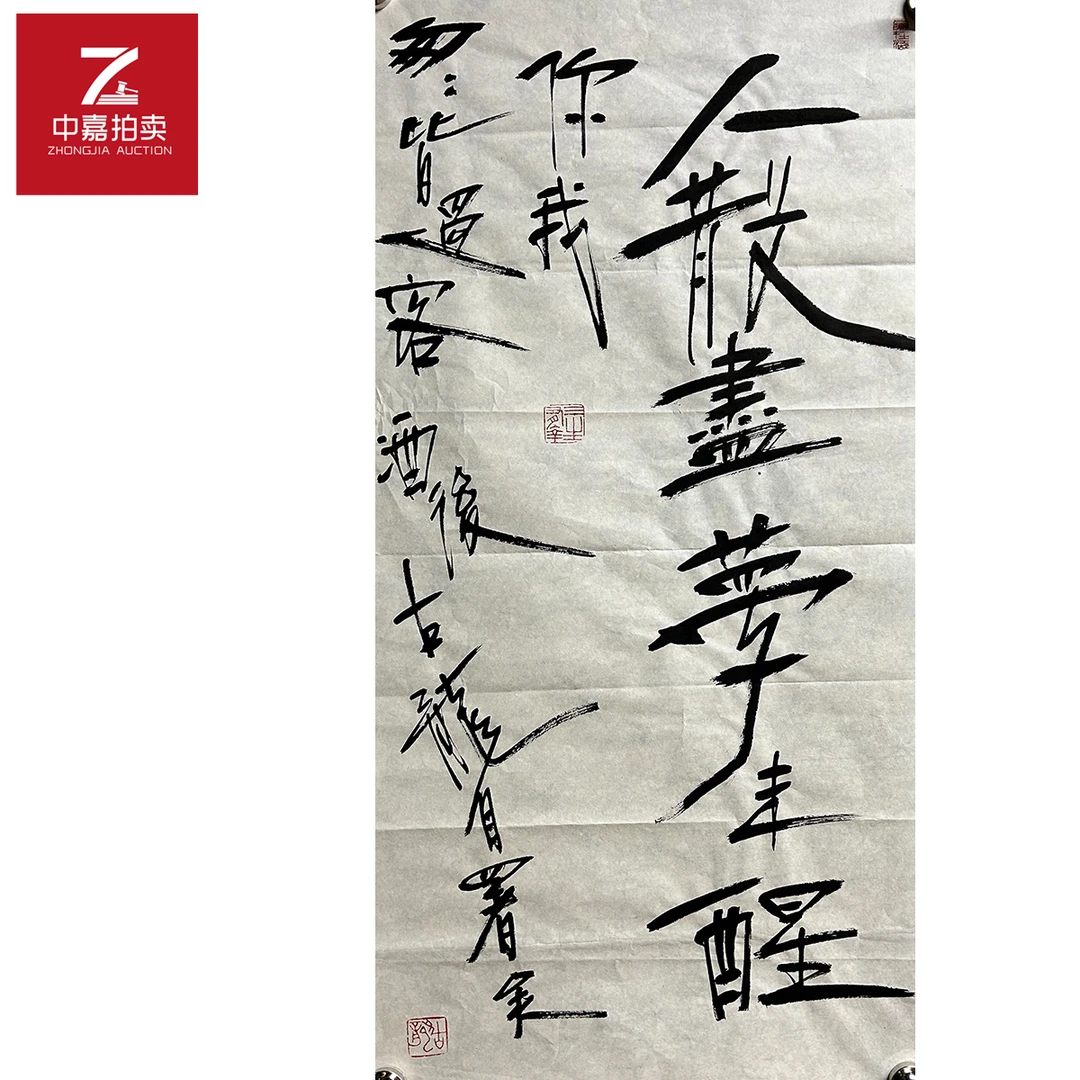 中嘉拍卖
ZHONGJIA AUCTION
人散盡夢未醒
你我
匆:皆過客
酒後古龍自署